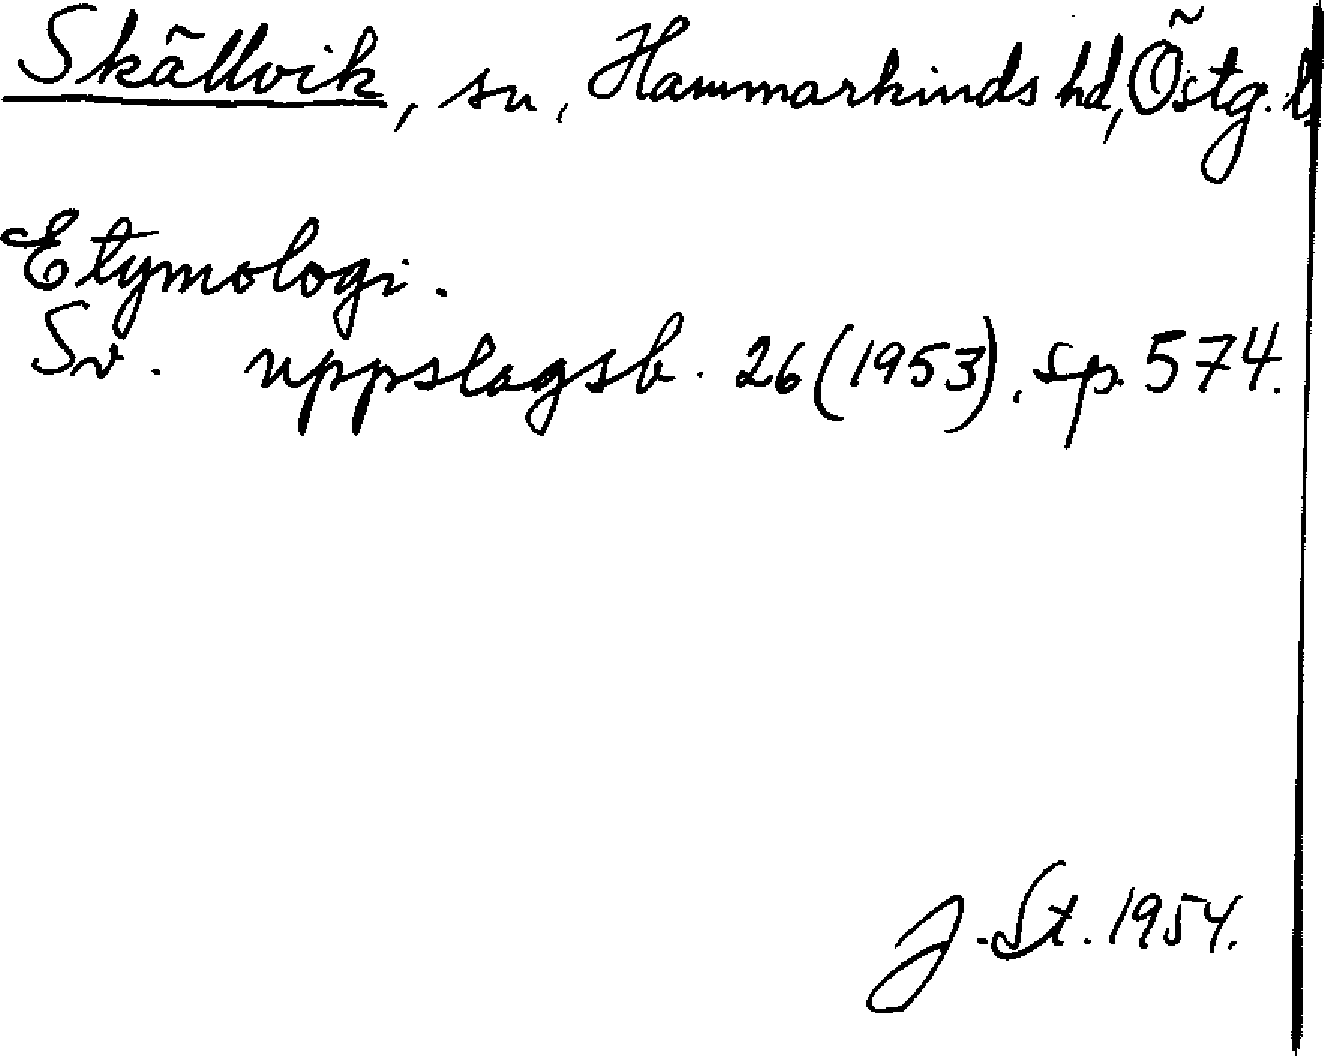 Skällvik, sn, Hammarkinds hd, Östg. l.
Etymologi.
Sv. uppslagsb. 26 (1953), sp. 574.
J. St. 1954.